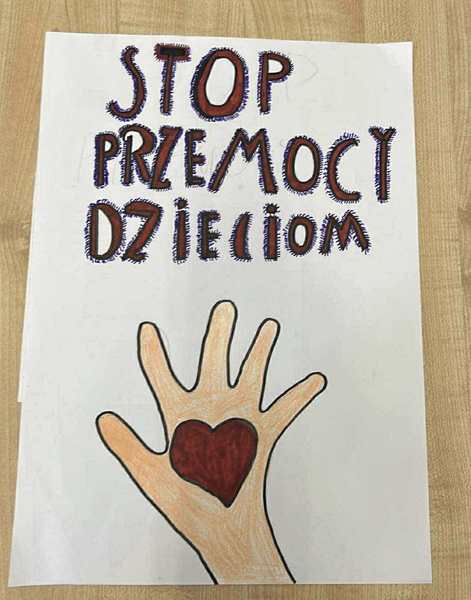 STOP
PRZEMOCY
DZIECIOM